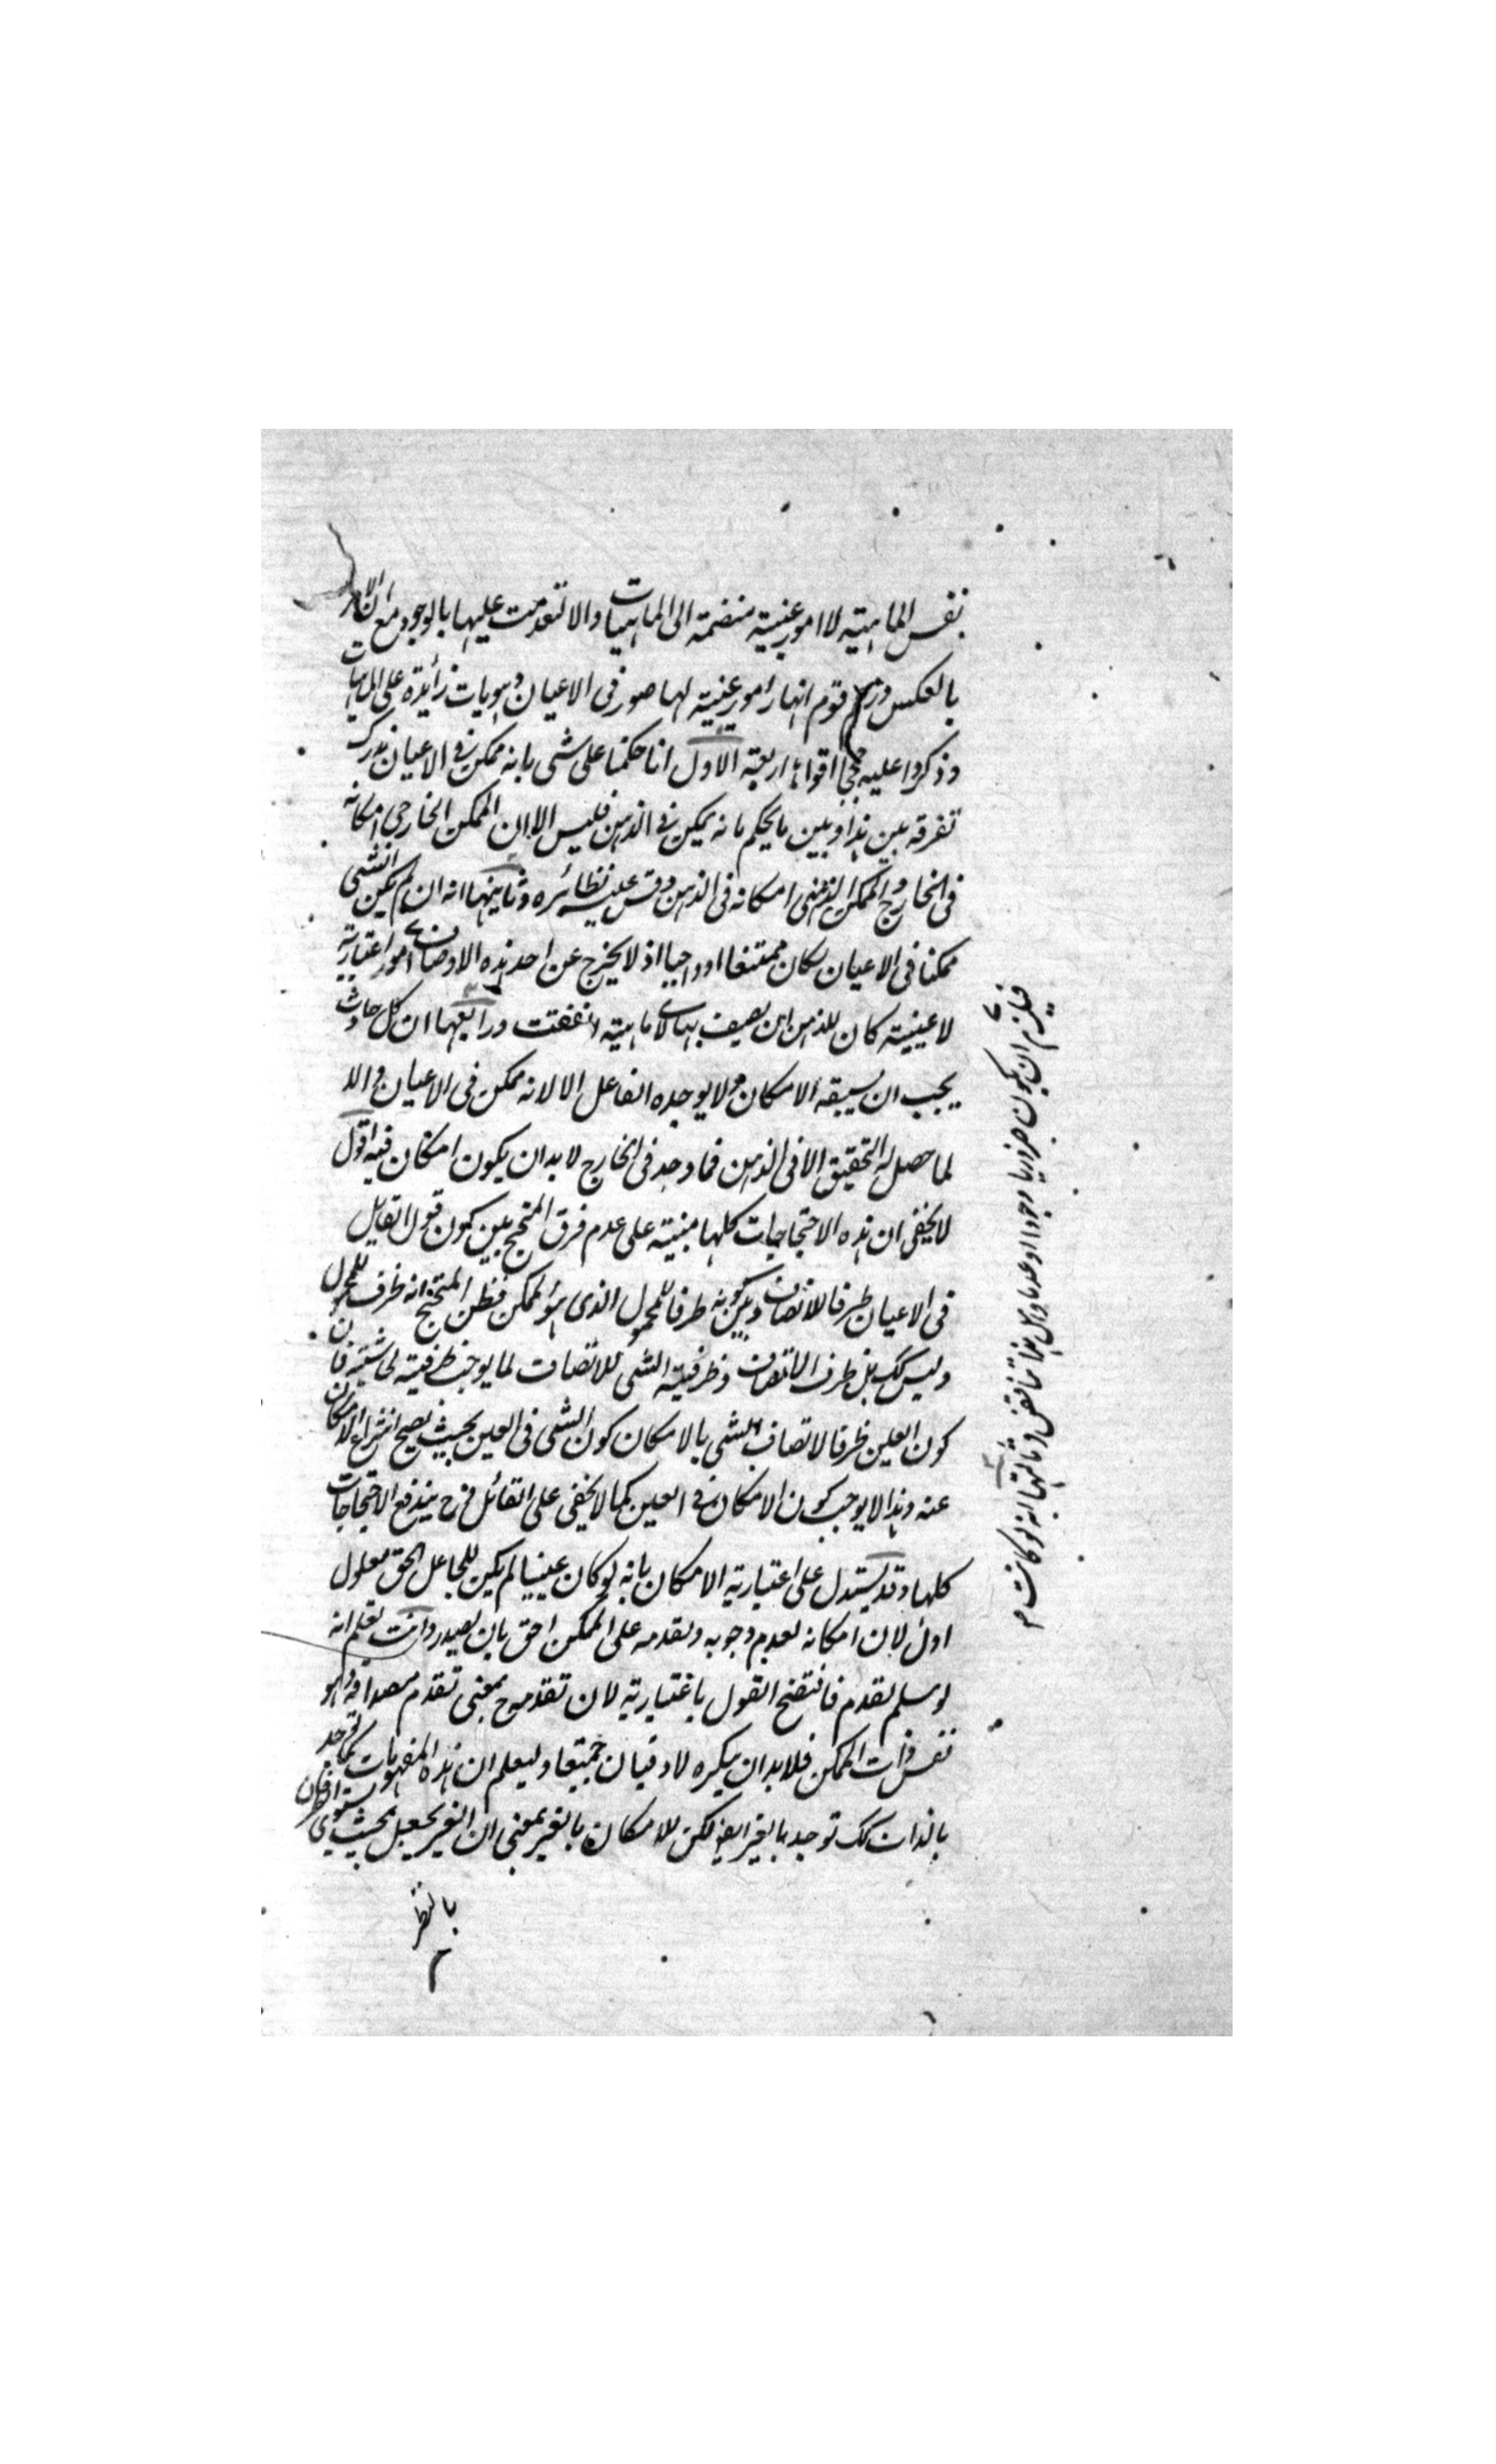 نفس الماهية لا امور عينية منضمة الى الماهيات والا لتقدمت عليها بالوجود مع ان الامر
بالعكس وزعم قوم انها امور عينية لها صور فى الاعيان وهويات زائدة على الماهيات
وذكروا عليه حججا اقواها اربعة الاول انا حكمنا على شى بانه ممكن فى الاعيان ندرك
تفرقة بين هذا وبين ما يحكم بانه يمكن فى الذهن فليس الا ان الممكن الخارجى امكانه
فى الخارج والممكن الذهنى امكانه فى الذهن وقس عليه نظائره وثانيها انه ان لم يكن الشى
ممكنا فى الاعيان لكان ممتنعا او واجبا اذ لا يخرج عن احد هذه الاوصاف امور اعتبارية
لا عينية كان للذهن ان يصيف بها لاى ماهية اتفقت ورابعها ان كل حادث
يجب ان يسبقه الامكان ولا يوجده الفاعل الا لانه ممكن فى الاعيان والا
لما حصل له التحقيق الا فى الذهن فما وجد فى الخارج لا بد ان يكون امكان فيه اقول
لا يخفى ان هذه الاحتجاجات كلها مبنية على عدم فرق المحتج بين كون قول القايل
فى الاعيان ظرفا للاتصاف وبين كونه ظرفا للمحمول الذى هو الممكن فظن المحتج انه ظرف للمحمول
وليس كك بل ظرف الاتصاف وظرفية الشى للاتصاف لما يوجب ظرفية لحاشيته فان
كون العين ظرفا لاتصاف الشى بالامكان كون الشى فى العين بحيث يصح انتزاع الامكان
عنه وهذا لا يوجب كون الامكان فى العين كما لا يخفى على القائل فح يندفع الاحتجاجات
كلها وقد يستدل على اعتبارية الامكان بانه لو كان عينيا لم يكن للجاعل الحق معلول
اول لان امكانه لعدم وجوبه وتقدمه على الممكن احق بان يصدر وانت تعلم انه
لو سلم تقدم فاتضح القول باعتبارية لان تقدمه ح بمعنى تقدم مصداقه وهو
نفس ذات الممكن فلا بد ان ينكره لا دفيان جميعا وليعلم ان هذه المفهومات كما توجد
بالذات كك توجد بالغير ايض لكن للامكان بالغير بمعنى ان الغير يجعل بحيث يستوى الطرفان
بالنظر
فيلزم ان يكون ضروريا وجودا او عدما وهل هذا الا تناقض وثالثها انه لو كانت